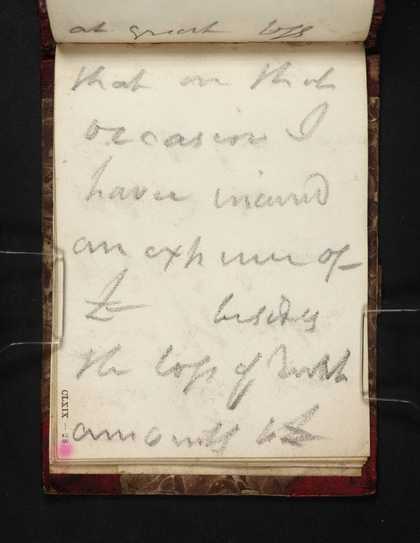 at great loss
that on that
occasion I
have incurred
an expense of
£ besides
the loss of
amounts to
CLXIX — 28